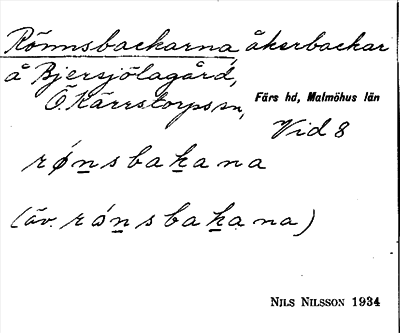 Rönnsbackarna, åkerbackar
å Bjersjölagård,
Ö. Kärrstorps sn,
Färs hd, Malmöhus län
Vid 8
rǿn̲sbak̲ana
(äv. rǿn̲sbak̲ana)
NILS NILSSON 1934